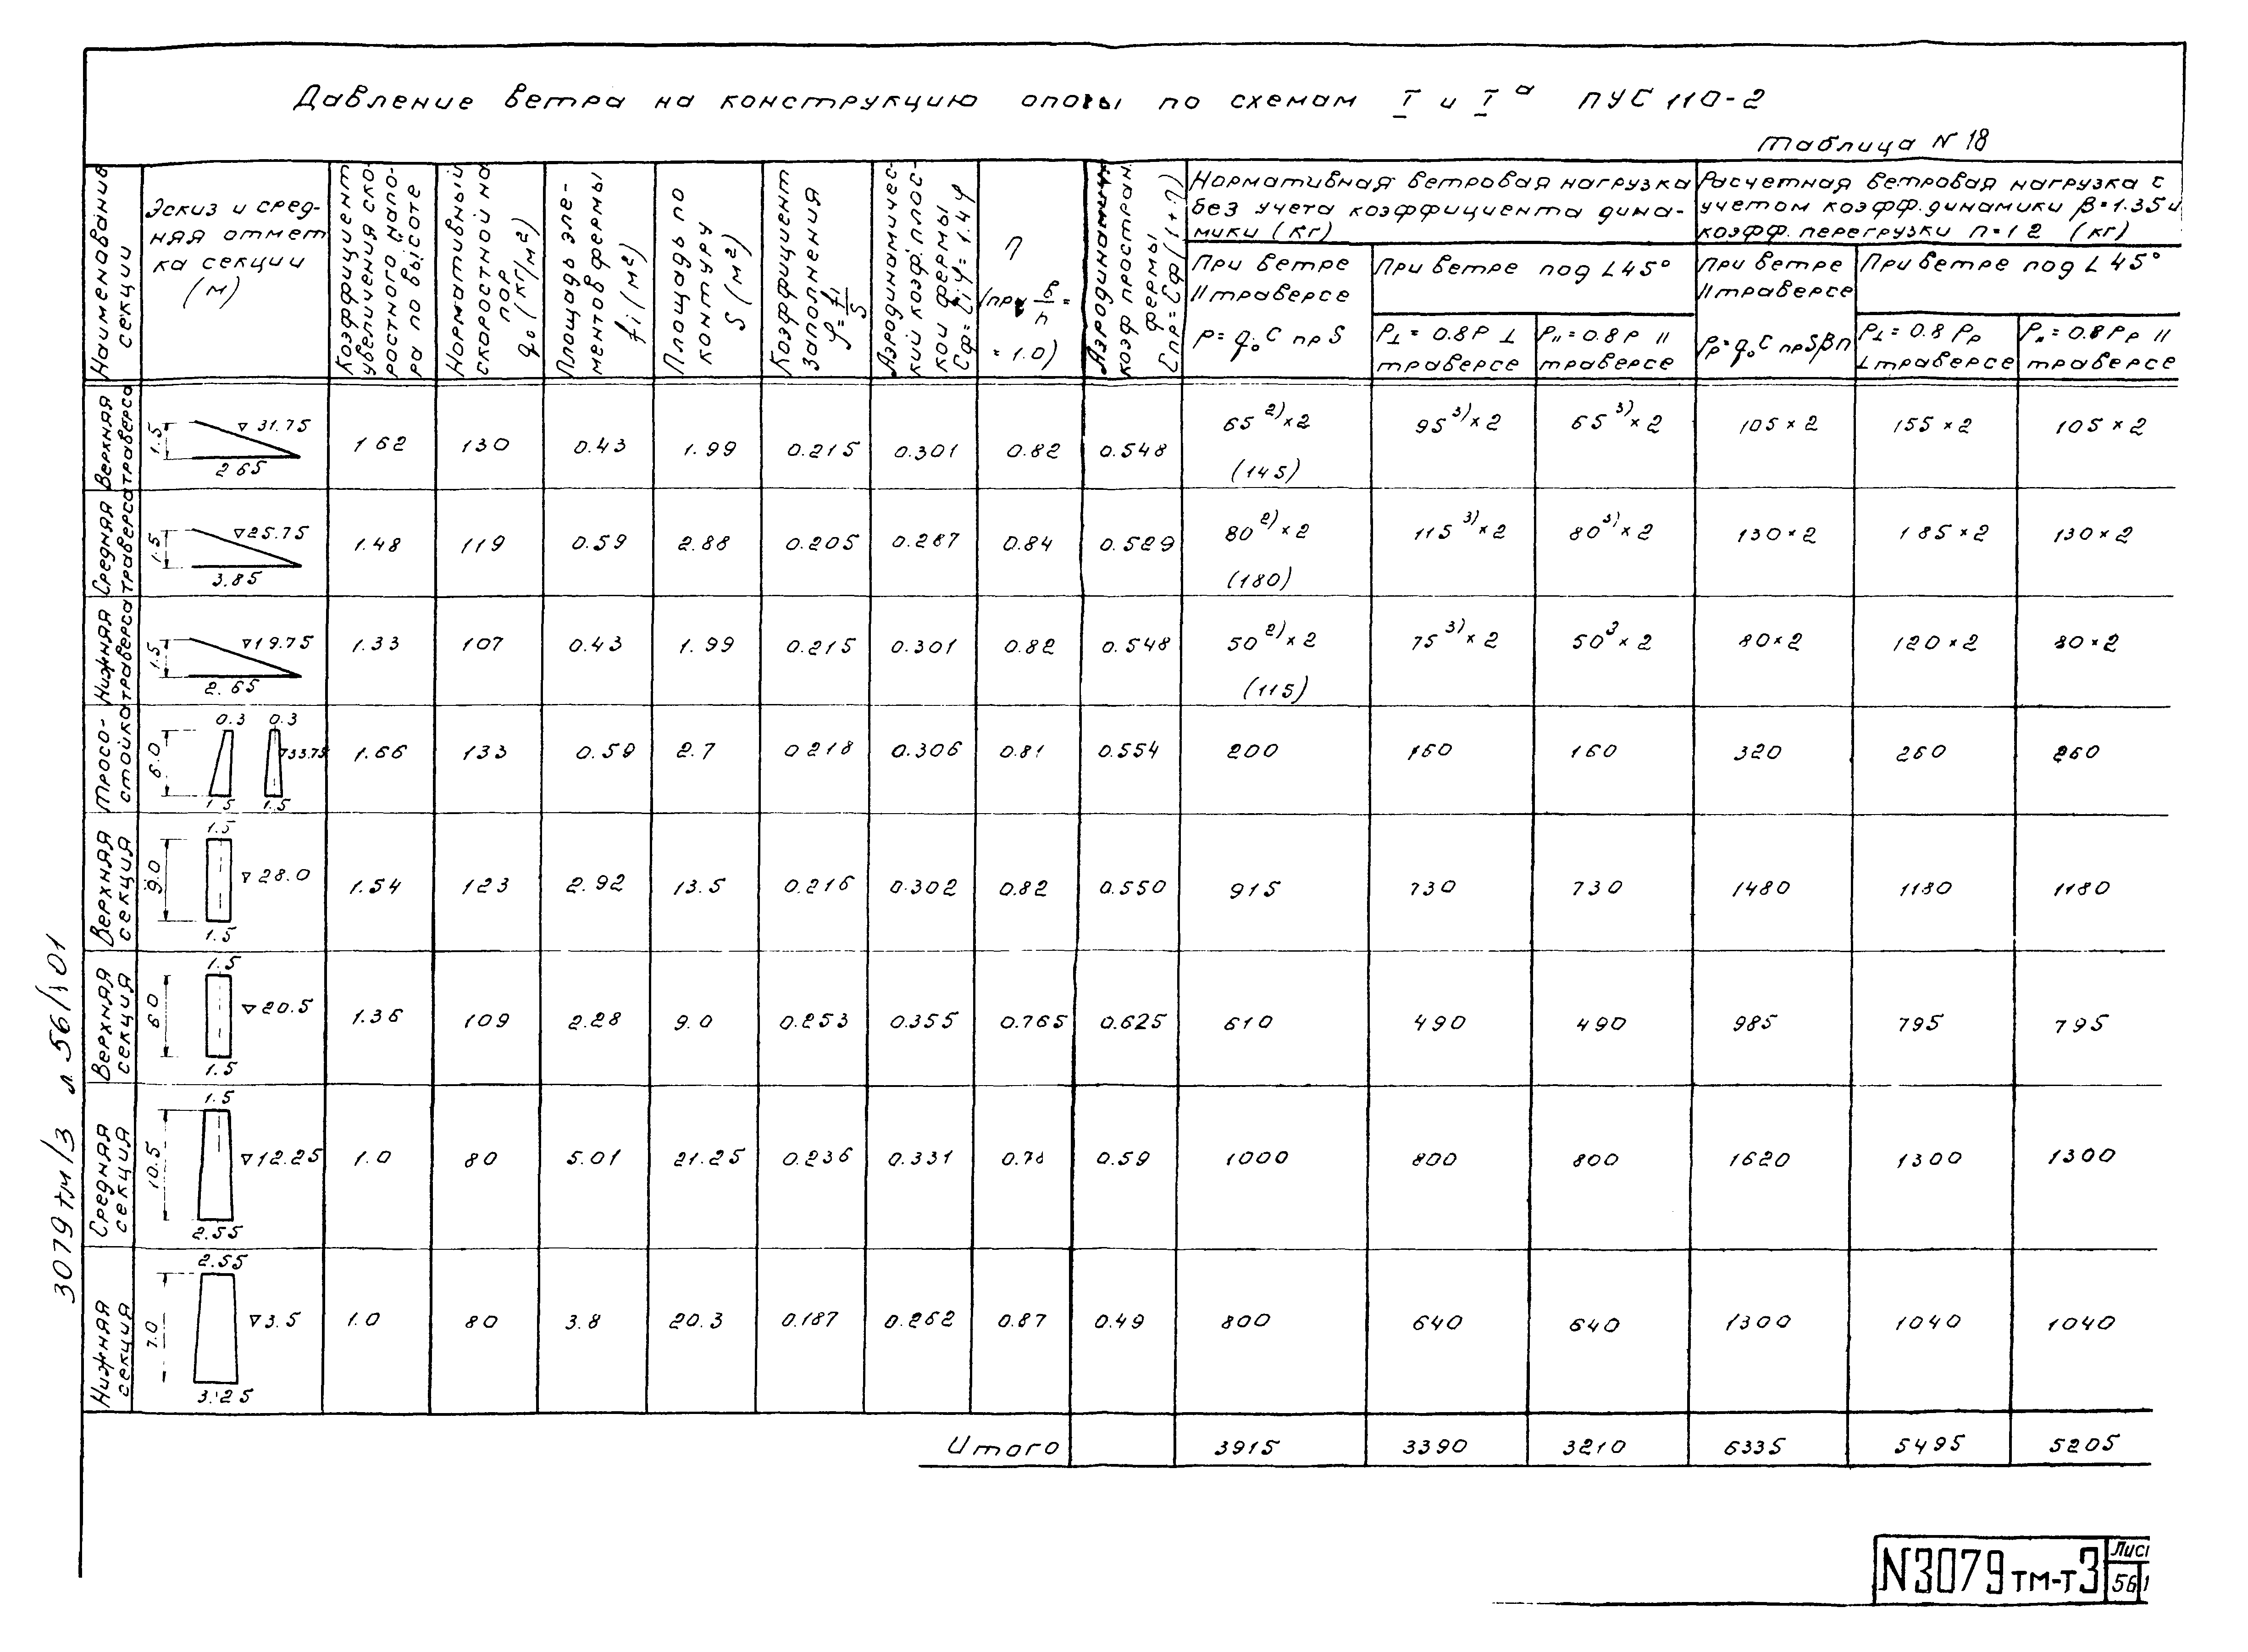 Давление ветра на конструкцию опоры по схемам I и I а ПУС 110-2
Таблица N 18
Наименование секции
Эскиз и сред-
няя отмет
ка секции
(м)
Коэффициент
увеличения ско-
ростного напо-
ра по высоте
Нормативный
скоростной на
пор
q₀ (кг/м²)
Площадь эле-
ментов фермы
fi (м²)
Площадь по
контуру
S (м²)
Коэффициент
заполнения
φ = fi/S
Аэродинамичес-
кий коэф. плос-
кой фермы
Сф = Ciφ = 1.4φ
η
(при б/h =
= 1.0)
Аэродинамич
коэф пространс
фермы
Спр = Сф (1+η)
Нормативная ветровая нагрузка
без учета коэффициента дина-
мики (кг)
Расчетная ветровая нагрузка с
учетом коэфф. динамики β = 1.35 и
коэфф. перегрузки n = 1 2 (кг)
При ветре
II траверсе
P = q₀C пр S
При ветре под ∠ 45°
P⊥ = 0.8P ⊥
траверсе
P,, = 0.8 P II
траверсе
При ветре
II траверсе
Pр = q₀C прSβn
При ветре под ∠ 45°
P⊥ = 0.8 Pр
⊥ траверсе
P,, = 0.8 Pр II
траверсе
Верхняя траверса 1.5 ▽ 31.75 2 65 1 62 130 0.43 1.99 0.215 0.301 0.82 0.548 65 2) × 2 (145) 95 3) × 2 65 3) × 2 105 × 2 155 × 2 105 × 2
Средняя траверса 1.5 ▽ 25.75 3.85 1.48 119 0.59 2.88 0.205 0.287 0.84 0.529 80 2) × 2 (180) 115 3) × 2 80 3) × 2 130 × 2 185 × 2 130 × 2
Нижняя траверса 1.5 ▽ 19.75 2.65 1.33 107 0.43 1.99 0.215 0.301 0.82 0.548 50 2) × 2 (115) 75 3) × 2 50 3 × 2 80 × 2 120 × 2 80 × 2
Тросо-
стойка 6.0 0.3 0.3 ▽33.75 1.5 1.5 1.66 133 0.59 2.7 0 218 0.306 0.81 0.554 200 160 160 320 260 260
Верхняя секция 9.0 1.5 ▽ 28.0 1.5 1.54 123 2.92 13.5 0.216 0.302 0.82 0.550 915 730 730 1480 1180 1180
Верхняя секция 6 0 1.5 ▽ 20.5 1.5 1.36 109 2.28 9.0 0.253 0.355 0.765 0.625 610 490 490 985 795 795
Средняя секция 10.5 1.5 ▽ 12.25 2.55 1.0 80 5.01 21.25 0.236 0.331 0.78 0.59 1000 800 800 1620 1300 1300
Нижняя секция 7.0 2.55 ▽ 3.5 3.25 1.0 80 3.8 20.3 0.187 0.262 0.87 0.49 800 640 640 1300 1040 1040
Итого 3915 3390 3210 6335 5495 5205
3079 тм/3 л. 56/101
N3079тм-т3
Лист
56